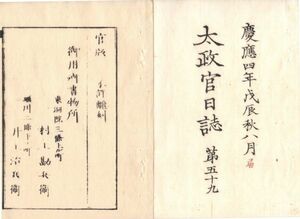 慶應四年戊辰秋八月
太政官日誌 第五十九
官版 不許飜刻
御用御書物所
東洞院三條上ル町
村上勘兵衞
堀川二條下ル町
井上治兵衞